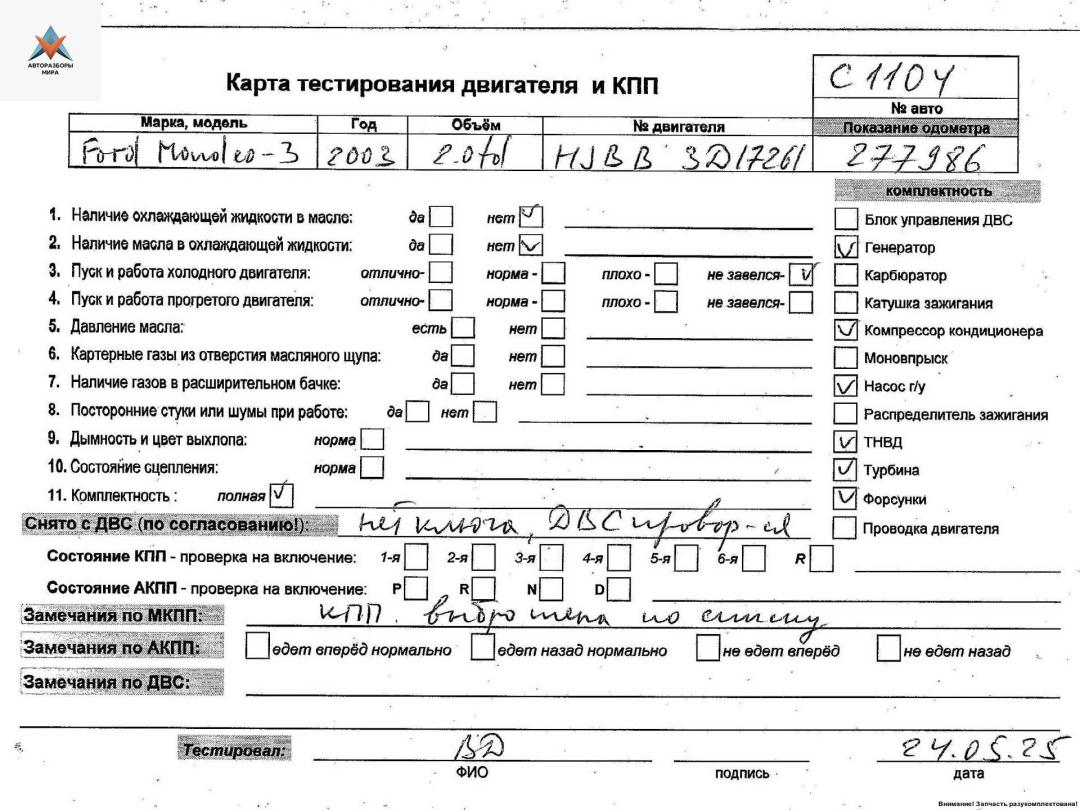 АВТОРАЗБОРЫ
МИРА
Карта тестирования двигателя и КПП
С1104
№ авто
Марка, модель Год Объём № двигателя Показание одометра
Ford Mondeo-3 2003 2.0td HJBB 3D17261 277986
комплектность
1. Наличие охлаждающей жидкости в масле: да нет
Блок управления ДВС
2. Наличие масла в охлаждающей жидкости: да нет
Генератор
3. Пуск и работа холодного двигателя: отлично- норма - плохо - не завелся-
Карбюратор
4. Пуск и работа прогретого двигателя: отлично- норма - плохо - не завелся-
Катушка зажигания
5. Давление масла: есть нет
Компрессор кондиционера
6. Картерные газы из отверстия масляного щупа: да нет
Моновпрыск
7. Наличие газов в расширительном бачке: да нет
Насос г/у
8. Посторонние стуки или шумы при работе: да нет
Распределитель зажигания
9. Дымность и цвет выхлопа: норма
ТНВД
10. Состояние сцепления: норма
Турбина
11. Комплектность : полная
Форсунки
Снято с ДВС (по согласованию!): нет ключа, ДВС провор-ся
Проводка двигателя
Состояние КПП - проверка на включение: 1-я 2-я 3-я 4-я 5-я 6-я R
Состояние АКПП - проверка на включение: P R N D
Замечания по МКПП: КПП. по
Замечания по АКПП: едет вперёд нормально едет назад нормально не едет вперёд не едет назад
Замечания по ДВС:
Тестировал: ВД 24.05.25
ФИО подпись дата
Внимание! Запчасть разукомплектована!